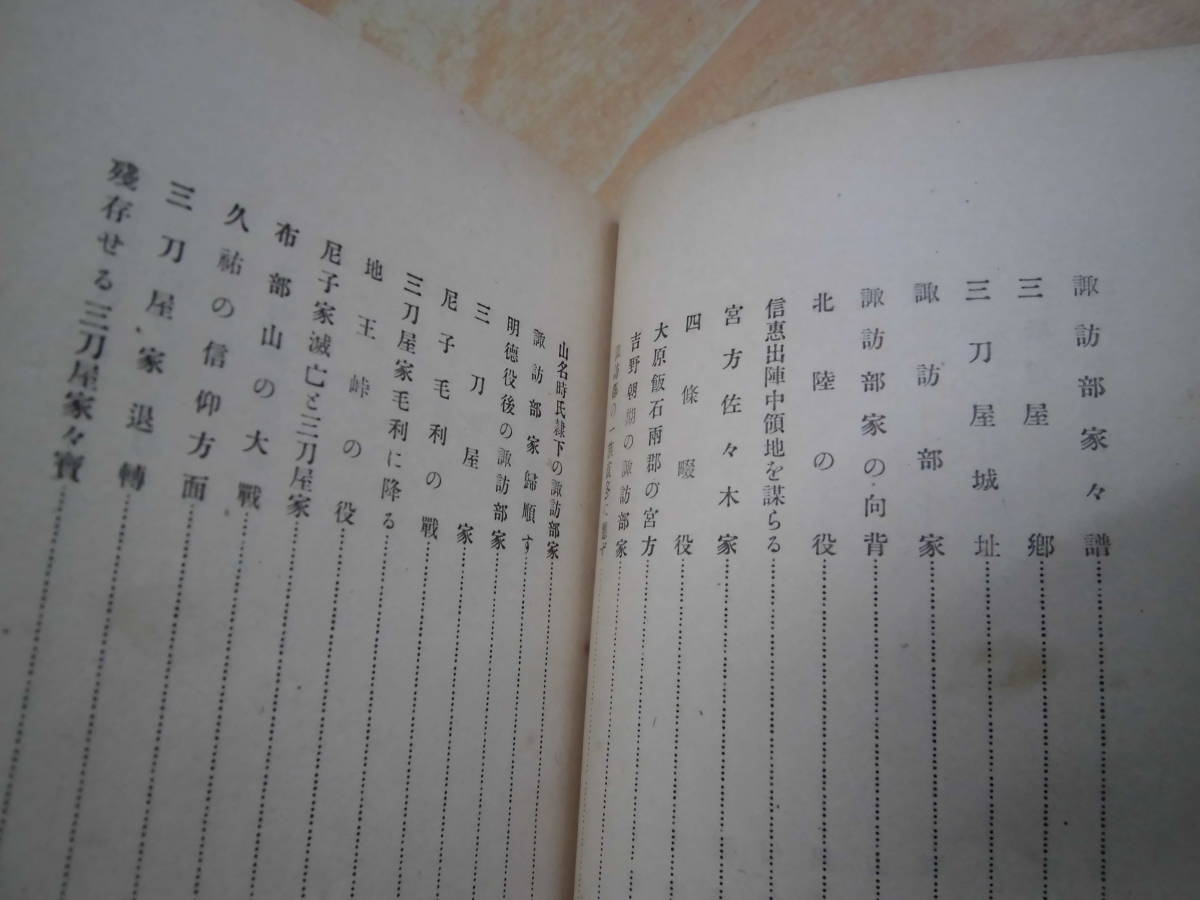 諏訪部家々譜
三屋鄉
三刀屋城址
諏訪部家
諏訪部家の向背
北陸の役
信惠出陣中領地を謀らる
宮方佐々木家
四條畷役
大原飯石兩郡の宮方
吉野朝期の諏訪部家
の一族
山名時氏隷下の諏訪部家
諏訪部家歸順す
明德役後の諏訪部家
三刀屋家
尼子毛利の戰
三刀屋家毛利に降る
地王峠の役
尼子家滅亡と三刀屋家
布部山の大戰
久祐の信仰方面
三刀屋家退轉
殘存せる三刀屋家々寶